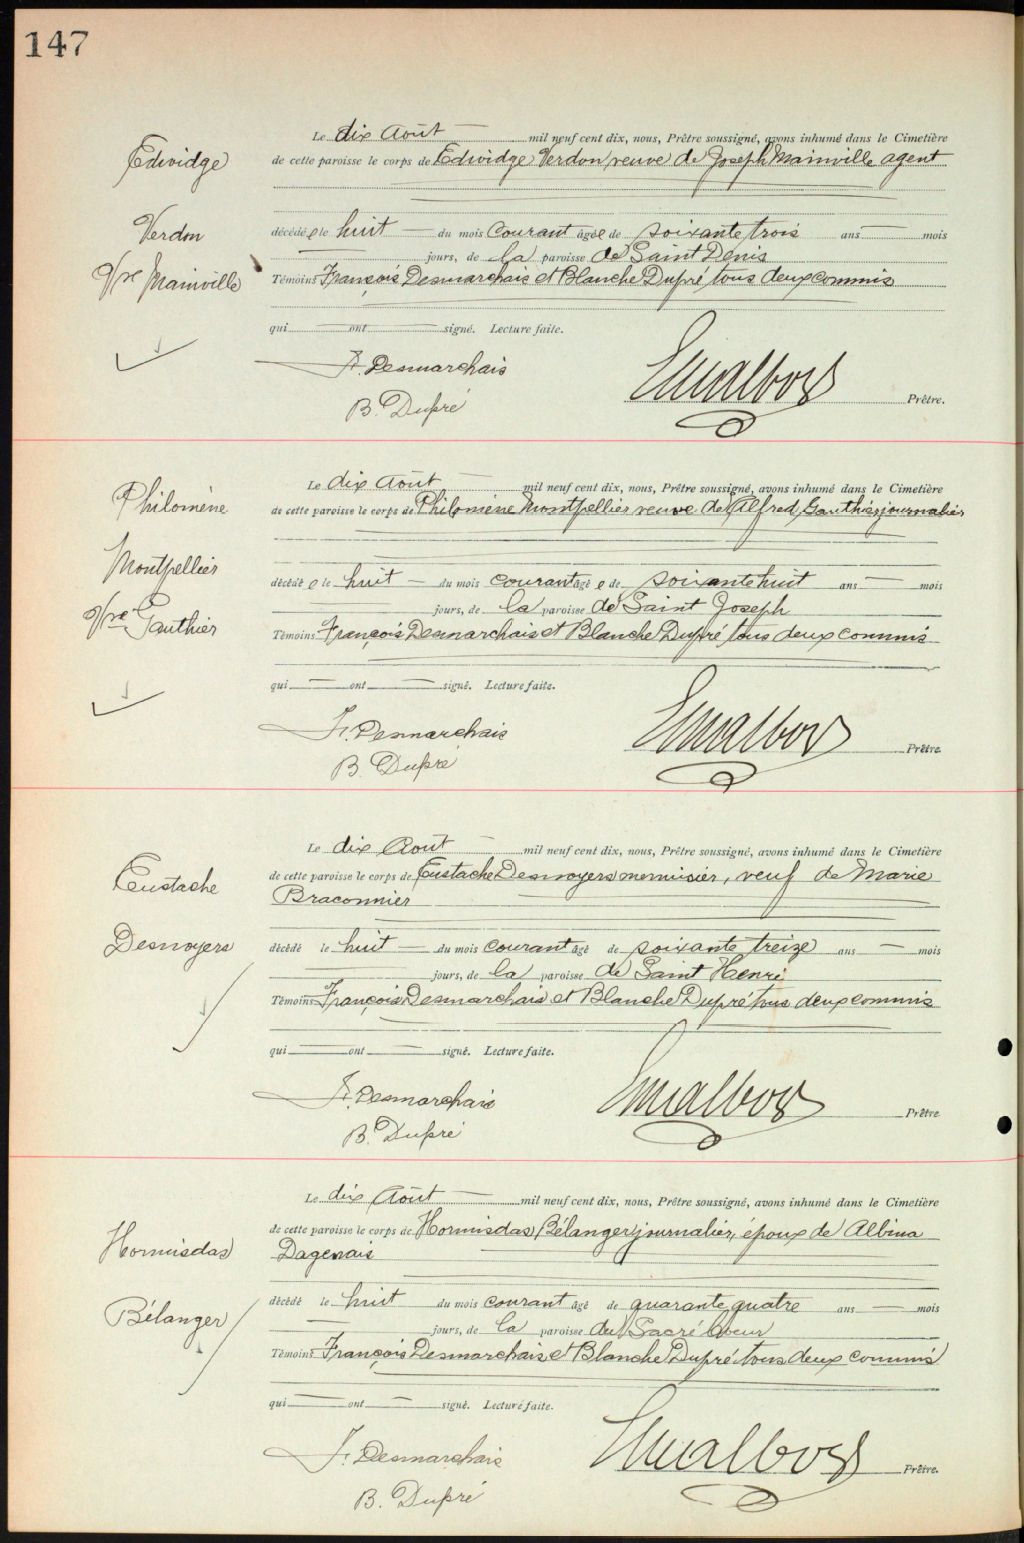 147
Edwidge
Verdon
Vve Mainville
Le dix Août — mil neuf cent dix, nous, Prêtre soussigné, avons inhumé dans le Cimetière
de cette paroisse le corps de Edwidge Verdon, veuve de Joseph Mainville agent
décédé e le huit — du mois courant âgé e de soixante trois ans — mois
— jours, de la paroisse de Saint Denis
Témoins François Desmarchais et Blanche Dupré tous deux commis
qui — ont — signé. Lecture faite.
F. Desmarchais
B. Dupré
Prêtre.
Philomène
Montpellier
Vve Gauthier
Le dix Août — mil neuf cent dix, nous, Prêtre soussigné, avons inhumé dans le Cimetière
de cette paroisse le corps de Philomène Montpellier veuve de Alfred Gauthier journalier
décédé e le huit — du mois courant âgé e de soixante huit ans — mois
— jours, de la paroisse de Saint Joseph
Témoins François Desmarchais et Blanche Dupré tous deux commis
qui — ont — signé. Lecture faite.
F. Desmarchais
B. Dupré
Prêtre.
Eustache
Desnoyers
Le dix Août — mil neuf cent dix, nous, Prêtre soussigné, avons inhumé dans le Cimetière
de cette paroisse le corps de Eustache Desnoyers menuisier, veuf de Marie
Braconnier
décédé le huit — du mois courant âgé de soixante treize ans — mois
— jours, de la paroisse de Saint Henri
Témoins François Desmarchais et Blanche Dupré tous deux commis
qui — ont — signé. Lecture faite.
F. Desmarchais
B. Dupré
Prêtre.
Hormisdas
Bélanger
Le dix Août — mil neuf cent dix, nous, Prêtre soussigné, avons inhumé dans le Cimetière
de cette paroisse le corps de Hormisdas Bélanger journalier, époux de Albina
Dagenais
décédé le huit du mois courant âgé de quarante quatre ans — mois
— jours, de la paroisse du Sacré Coeur
Témoins François Desmarchais et Blanche Dupré tous deux commis
qui — ont — signé. Lecture faite.
F. Desmarchais
B. Dupré
Prêtre.